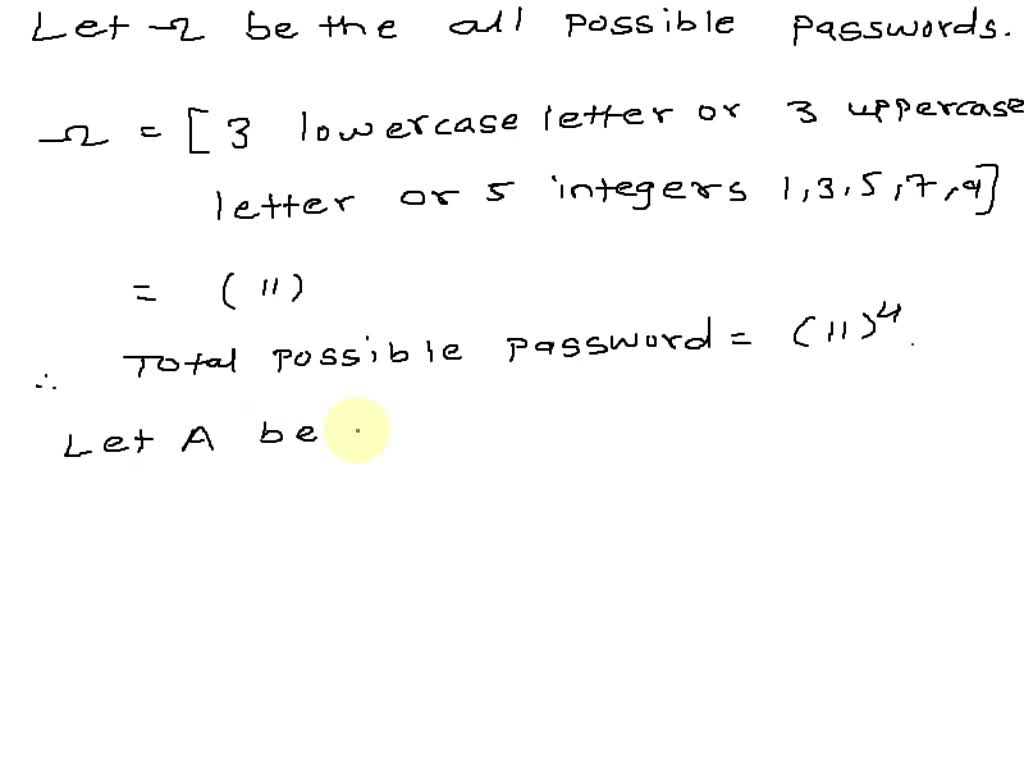 Let Ω be the all possible passwords.
Ω = [3 lowercase letter or 3 uppercase
letter or 5 integers 1,3,5,7,9]
= (11)
∴ Total possible password = (11)⁴.
Let A be